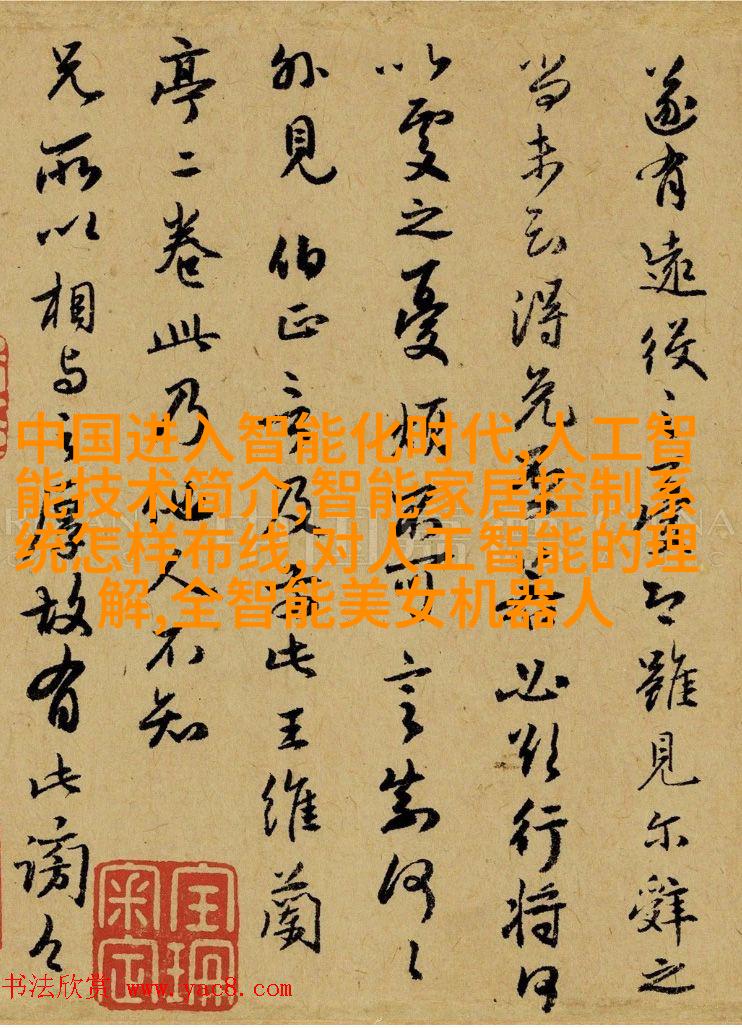 遂有遠役之雖見尔辭之
当未言得免必欲行将何
以憂煩言奈何
外見伯正言及此王維蘭
亭二卷此乃他人不知
兄所以相与之厚故有此謗
中国进入智能化时代,人工智
能技术简介,智能家居控制系
统怎样布线,对人工智能的理
解,全智能美女机器人
书法欣赏 www.yac8.com